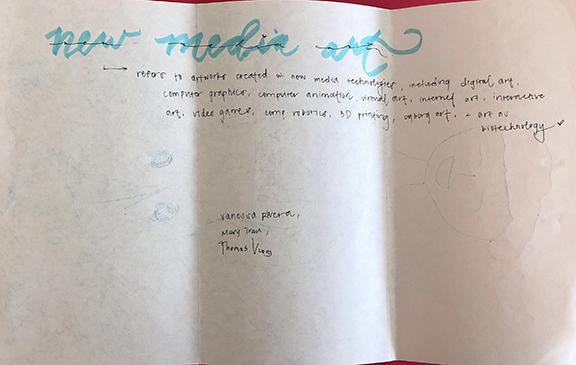 new media art
refers to artworks created w new media technologies, including digital art,
computer graphics, computer animation, virtual art, internet art, interactive
art, video games, comp. robotics, 3D printing, cyborg art, + art as
biotechnology
Vanessa Rivera,
Mary Tran,
Thomas Vuong